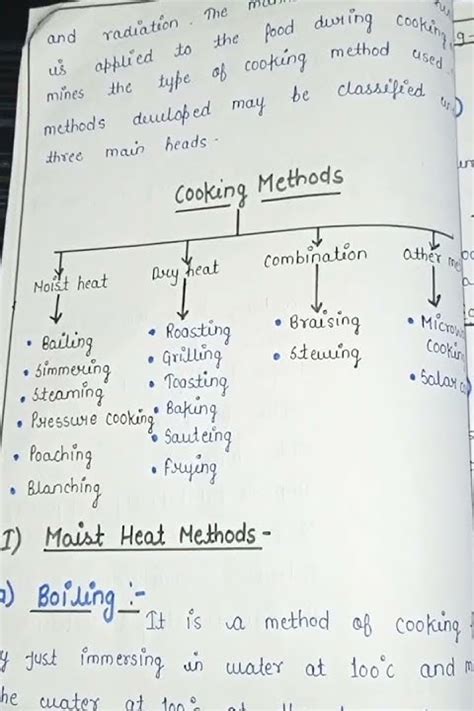 and radiation. The
is applied to the food during cooking
mines the type of cooking method used
methods developed may be classified
three main heads.
Cooking Methods
Moist heat
Dry heat
Combination
Other
• Boiling
• Simmering
• Steaming
• Pressure cooking
• Poaching
• Blanching
• Roasting
• Grilling
• Toasting
• Baking
• Sauteing
• Frying
• Braising
• Stewing
• Micro
Cookin
• Solar
I) Moist Heat Methods -
Boiling :-
It is a method of cooking
y just immersing in water at 100°c and
he water at 100°